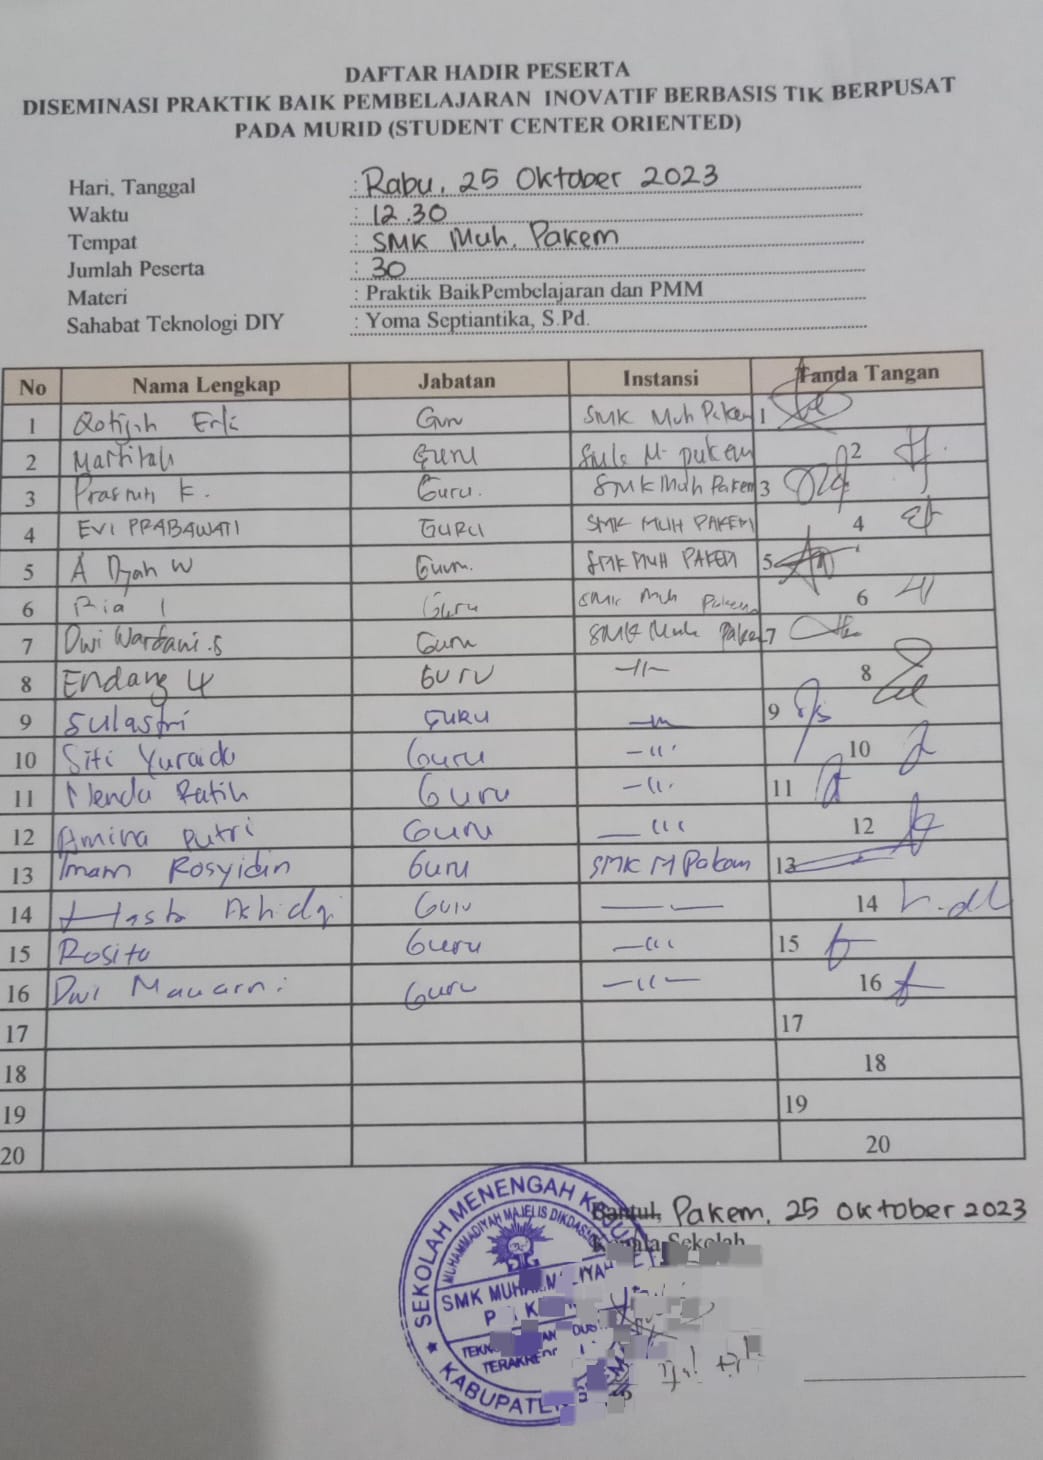 DAFTAR HADIR PESERTA
DISEMINASI PRAKTIK BAIK PEMBELAJARAN INOVATIF BERBASIS TIK BERPUSAT
PADA MURID (STUDENT CENTER ORIENTED)
Hari, Tanggal : Rabu, 25 Oktober 2023
Waktu : 12.30
Tempat : SMK Muh. Pakem
Jumlah Peserta : 30
Materi : Praktik BaikPembelajaran dan PMM
Sahabat Teknologi DIY : Yoma Septiantika, S.Pd.
No Nama Lengkap Jabatan Instansi Tanda Tangan
1 Guru SMK Muh Pakem 1
2 Martitah Guru SMK M. pakem 2
3 K. Guru. SMK Muh Pakem 3
4 EVI PRABAWATI GURU SMK MUH PAKEM 4
5 A Dyah W Guru. SMK MUH PAKEM 5
6 Ria I Guru SMK Muh Pakem 6
7 Dwi Wardani.S Guru SMK Muh Pakem 7
8 Endang Guru -11- 8
9 Sulastri GURU 9
10 Siti Guru -11- 10
11 Ratih Guru -11- 11
12 Amina Putri Guru 12
13 Imam Rosyidin Guru SMK M Pakem 13
14 Guru 14
15 Rosita Guru 15
16 Dwi Guru -11- 16
17 17
18 18
19 19
20 20
Bantul, Pakem, 25 Oktober 2023
Kepala Sekolah
SEKOLAH MENENGAH
MUHAMMADIYAH MAJELIS
SMK
KABUPATEN